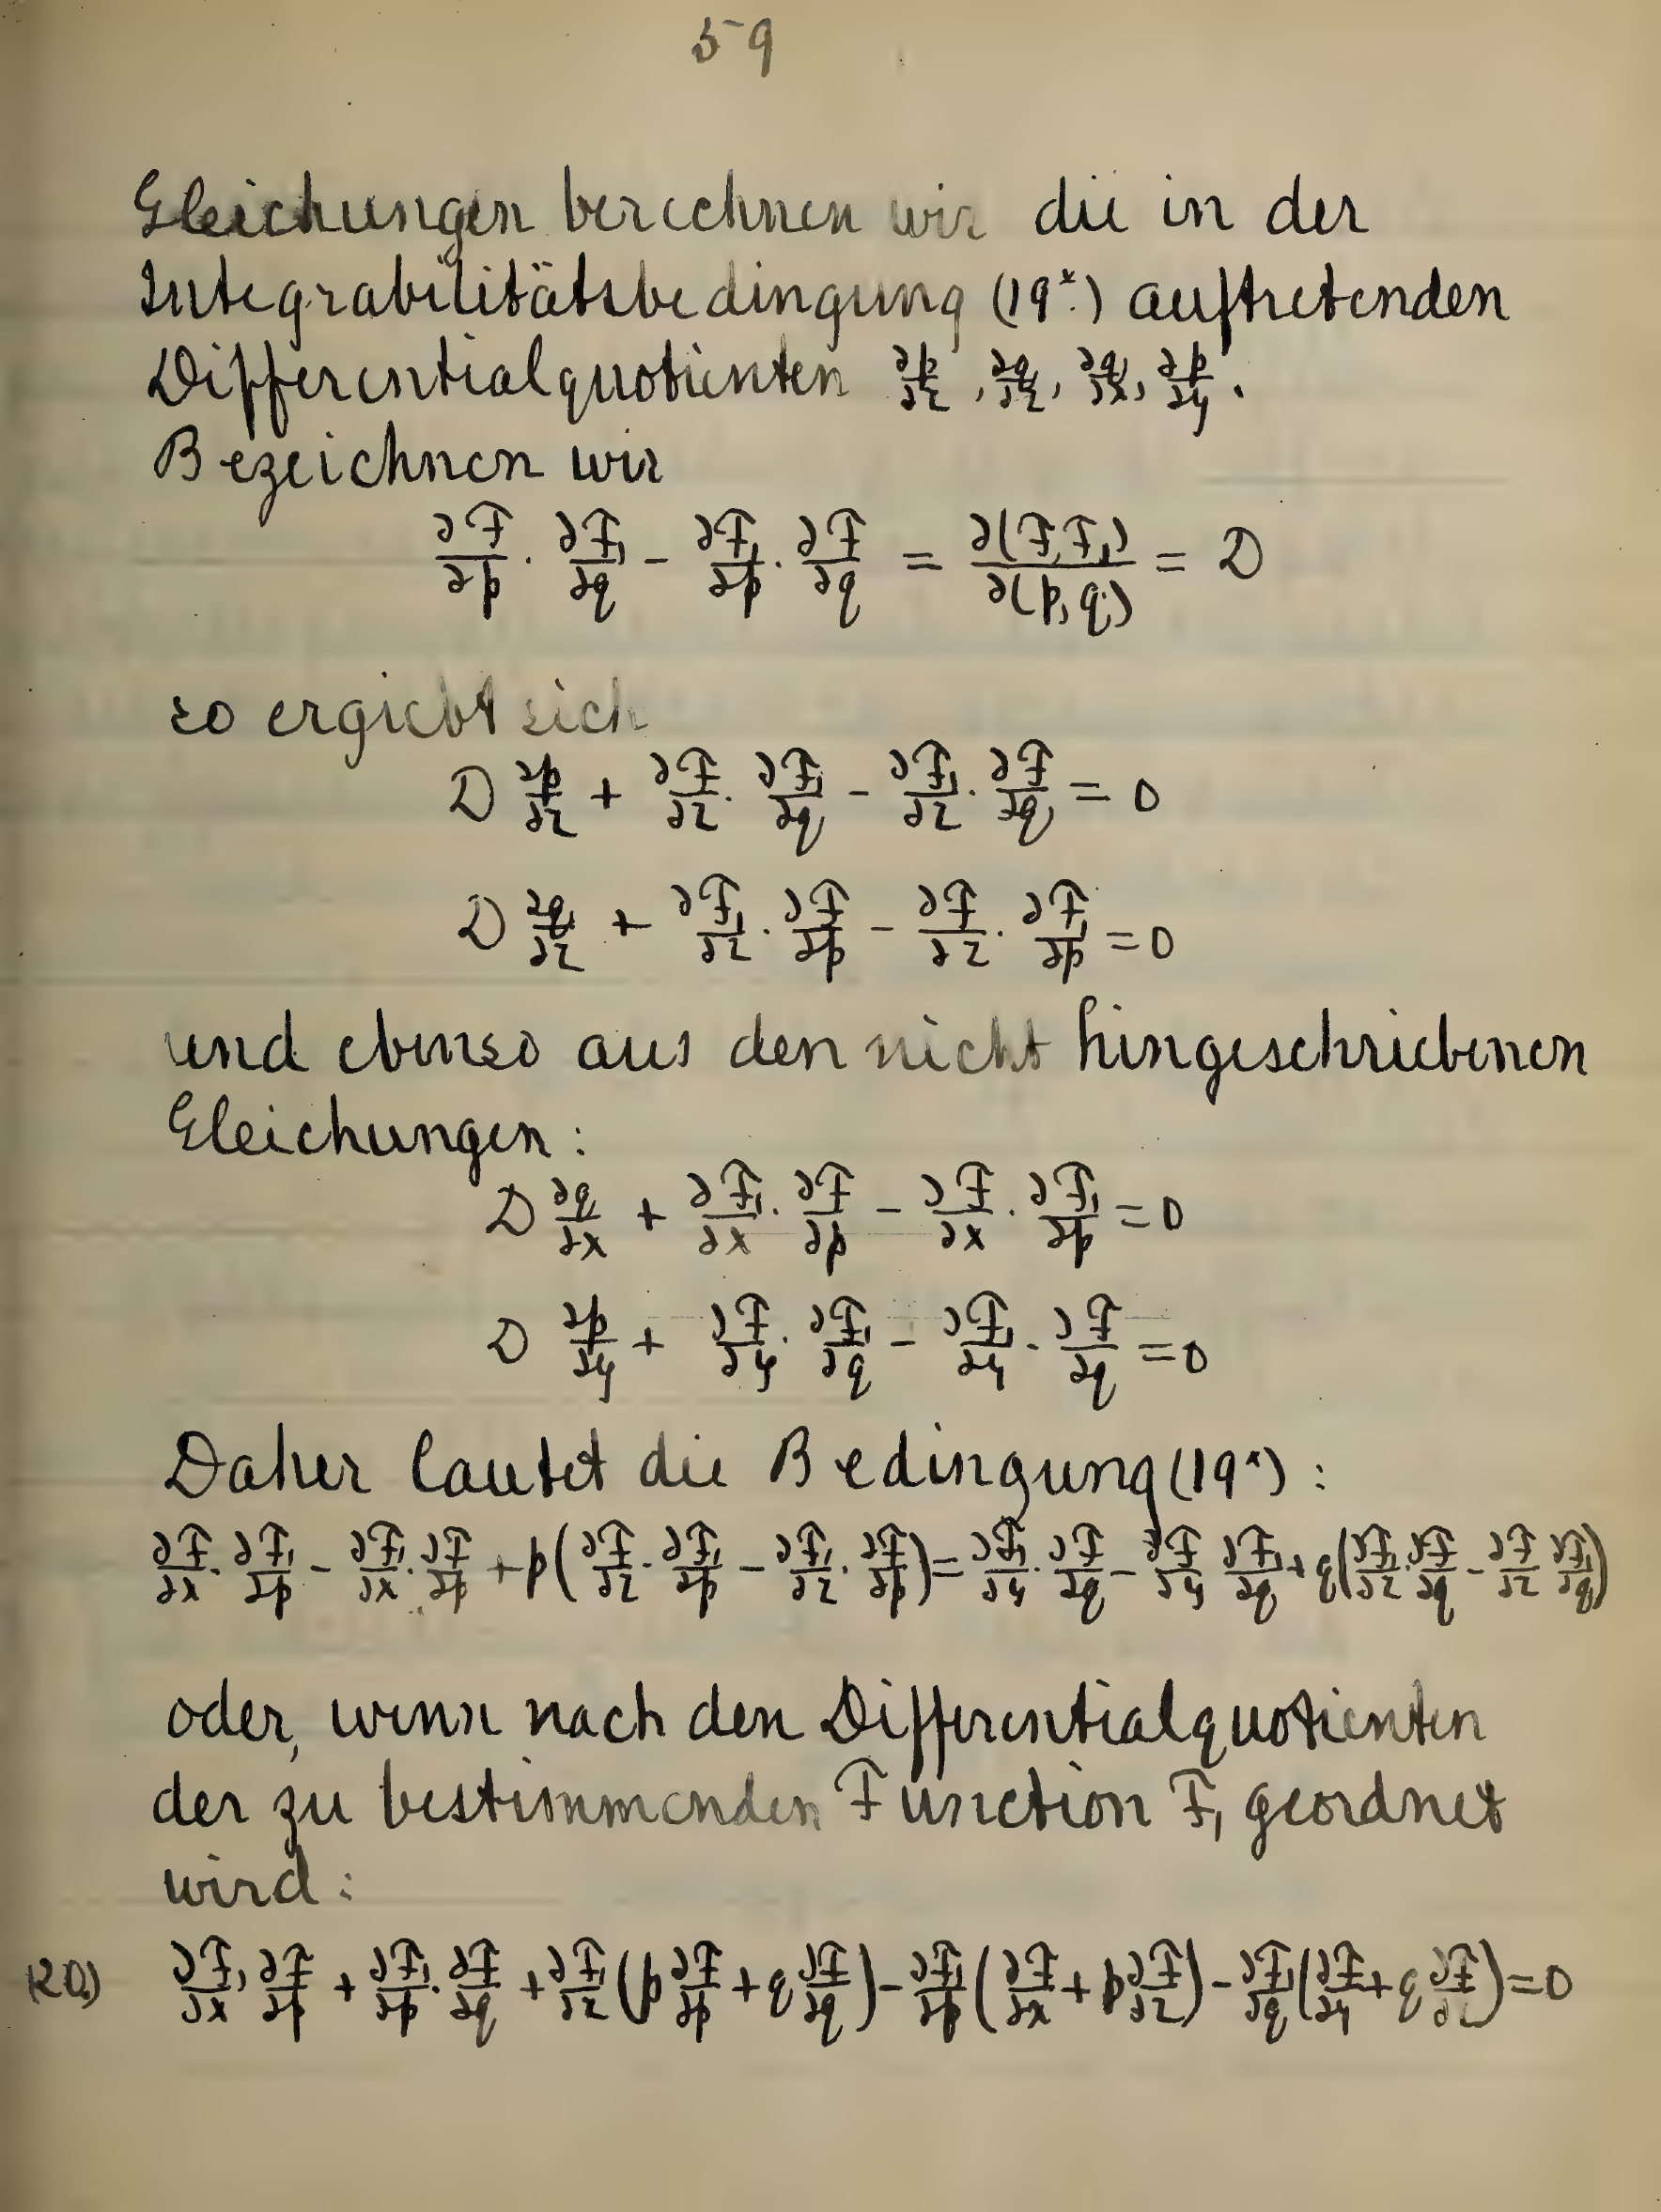 59
Gleichungen berechnen wir die in der
Integrabilitätsbedingung (19*.) auftretenden
Differentialquotienten ∂p/∂z, ∂q/∂z, ∂q/∂x, ∂p/∂y.
Bezeichnen wir
∂F/∂p · ∂F₁/∂q − ∂F₁/∂p · ∂F/∂q = ∂(F,F₁)/∂(p,q) = D
so ergiebt sich
D ∂p/∂z + ∂F/∂z · ∂F₁/∂q − ∂F₁/∂z · ∂F/∂q = 0
D ∂q/∂z + ∂F₁/∂z · ∂F/∂p − ∂F/∂z · ∂F₁/∂p = 0
und ebenso aus den nicht hingeschriebenen
Gleichungen:
D ∂q/∂x + ∂F₁/∂x · ∂F/∂p − ∂F/∂x · ∂F₁/∂p = 0
D ∂p/∂y + ∂F/∂y · ∂F₁/∂q − ∂F₁/∂y · ∂F/∂q = 0
Daher lautet die Bedingung (19*):
∂F/∂x · ∂F₁/∂p − ∂F₁/∂x · ∂F/∂p + p(∂F/∂z · ∂F₁/∂p − ∂F₁/∂z · ∂F/∂p) = ∂F₁/∂y · ∂F/∂q − ∂F/∂y ∂F₁/∂q + q(∂F₁/∂z · ∂F/∂q − ∂F/∂z ∂F₁/∂q)
oder, wenn nach den Differentialquotienten
der zu bestimmenden Function F₁ geordnet
wird:
(20.) ∂F₁/∂x · ∂F/∂p + ∂F₁/∂p · ∂F/∂q + ∂F₁/∂z (p ∂F/∂p + q ∂F/∂q) − ∂F₁/∂p (∂F/∂x + p ∂F/∂z) − ∂F₁/∂q (∂F/∂y + q ∂F/∂z) = 0